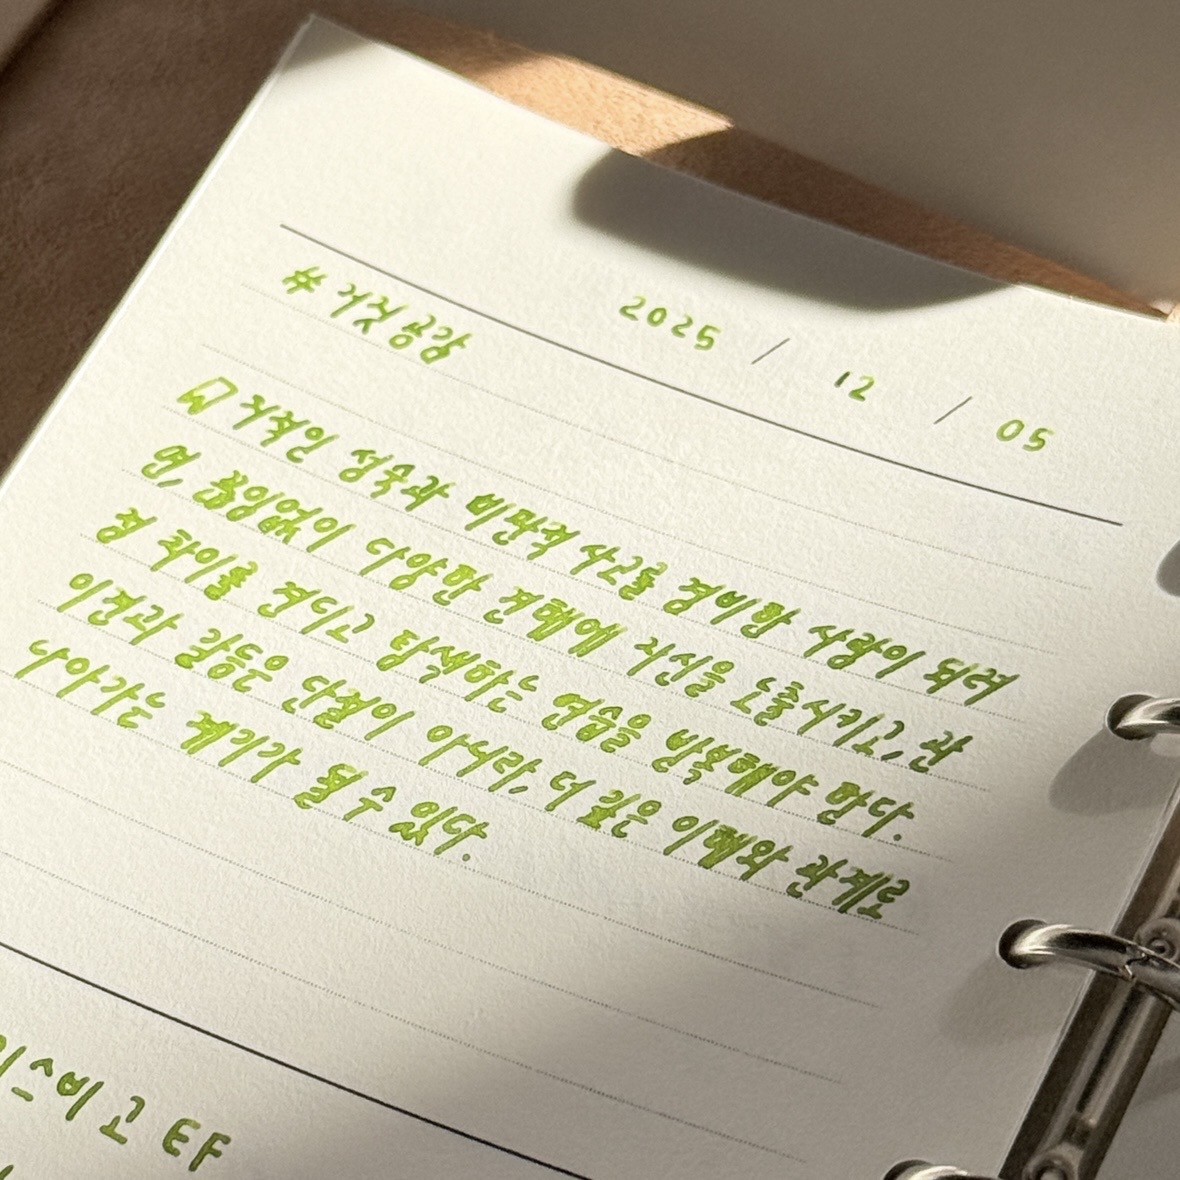 2025 / 12 / 05
# 거짓 공감
지속인 성숙과 비판적 사고를 겸비할 사람이 되려
면, 끊임없이 다양한 견해에 자신을 노출시키고, 관
점 차이를 견디고 탐색하는 연습을 반복해야 한다.
이견과 갈등은 단절이 아니라, 더 깊은 이해와 관계로
나아가는 계기가 될 수 있다.
EF